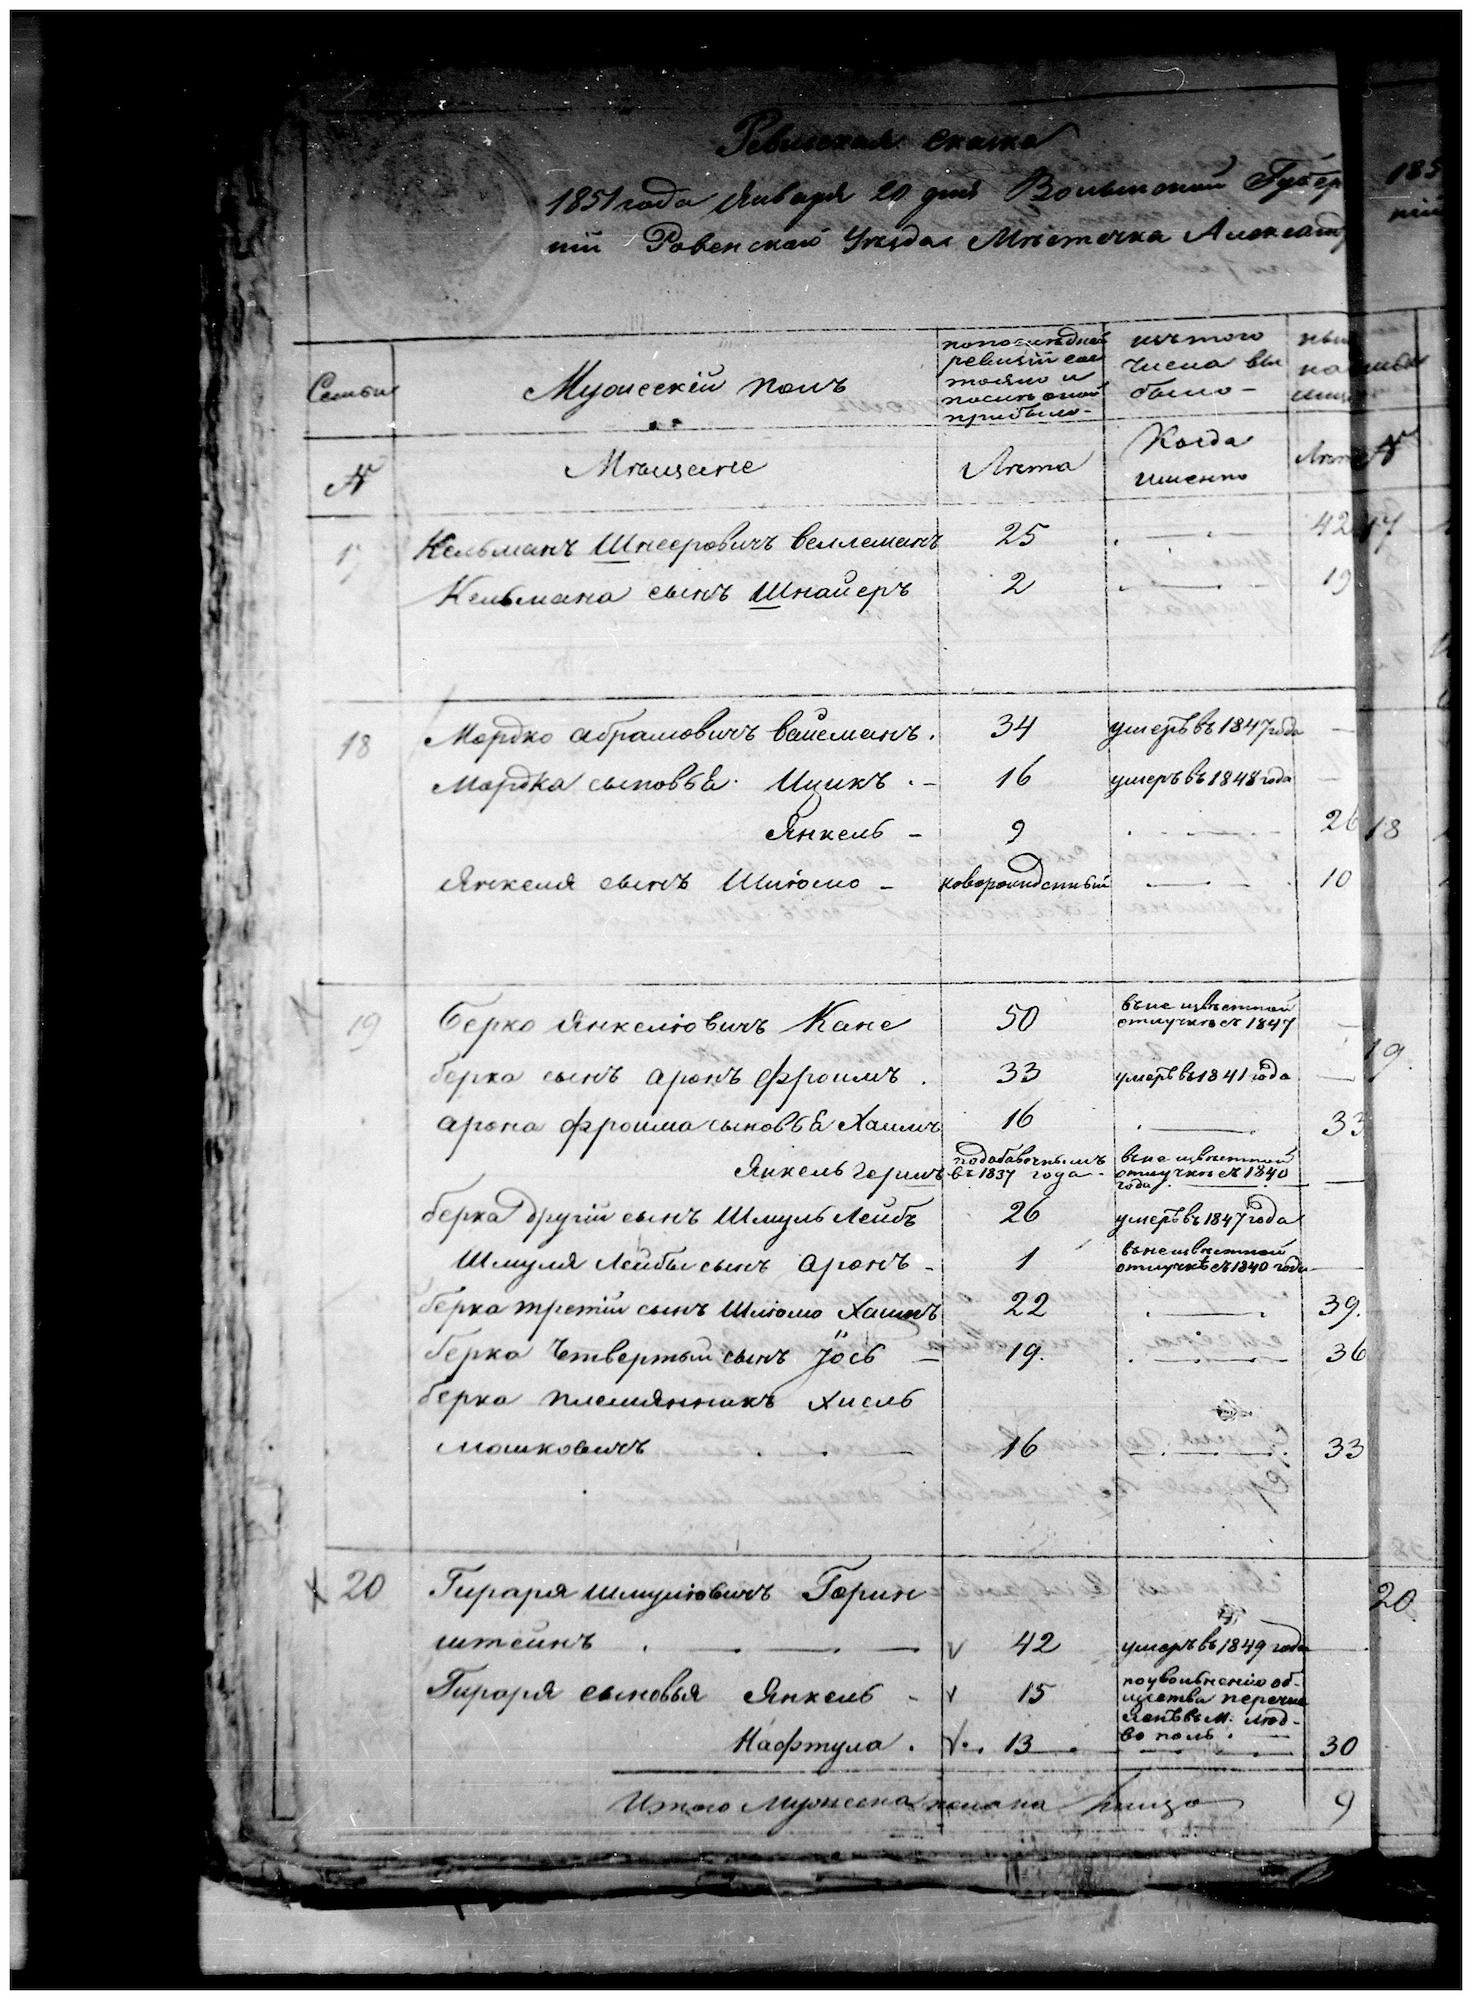 Ревиская сказка
1851 года Января 20 дня Волынской Губер
ніи Ровенскаго Уезда Мѣстечка Александ
Семьи
Мужескій полъ
по последней
ревизіи сос
тояло и
послѣ оной
прибыло
изъ того
числа вы
было
ныне
на лицо
№
Мѣщане
Лѣта
Когда
именно
Лѣта
№
17 Кельманъ Шнееровичъ Веллеманъ 25 42 17
Кельмана сынъ Шнаиеръ 2 19
18 Мордко Абрамовичъ Вайсманъ. 34 умеръ въ 1847 года
Мордка сыновья Ицикъ 16 умеръ въ 1848 года
Янкель 9 26 18
Янкеля сынъ Шліомо новорожденный 10
19 Берко Янкеліовичъ Кане 50 въ не извѣстной
отлучкѣ съ 1847
19.
Берка сынъ Аронъ Фроимъ. 33 умеръ въ 1841 года
Арона Фроима сыновья Хаимъ 16 33
Янкель Гершъ по добавочнымъ
въ 1837 года
въ не извѣстной
отлучкѣ съ 1840
года
Берка другій сынъ Шмуль Лейбъ 26 умеръ въ 1847 года
Шмуля Лейбы сынъ Аронъ 1 въ неизвѣстной
отлучкѣ съ 1840 года
Берка третій сынъ Шліомо Хаимъ 22 39.
Берка Четвертый сынъ Іось 19. 36
Берка племянникъ Хиель
Мошковичъ 16 33
20 Гираря Шмуліовичъ Горин
штейнъ 42 умеръ въ 1849 года
20
Гираря сыновья Янкель 15 по увольненію об-
щества перечис
ленъ въ м. Люд-
во поль.
Нафтула. 13 30
Итого Мужеска пола на лицо 9